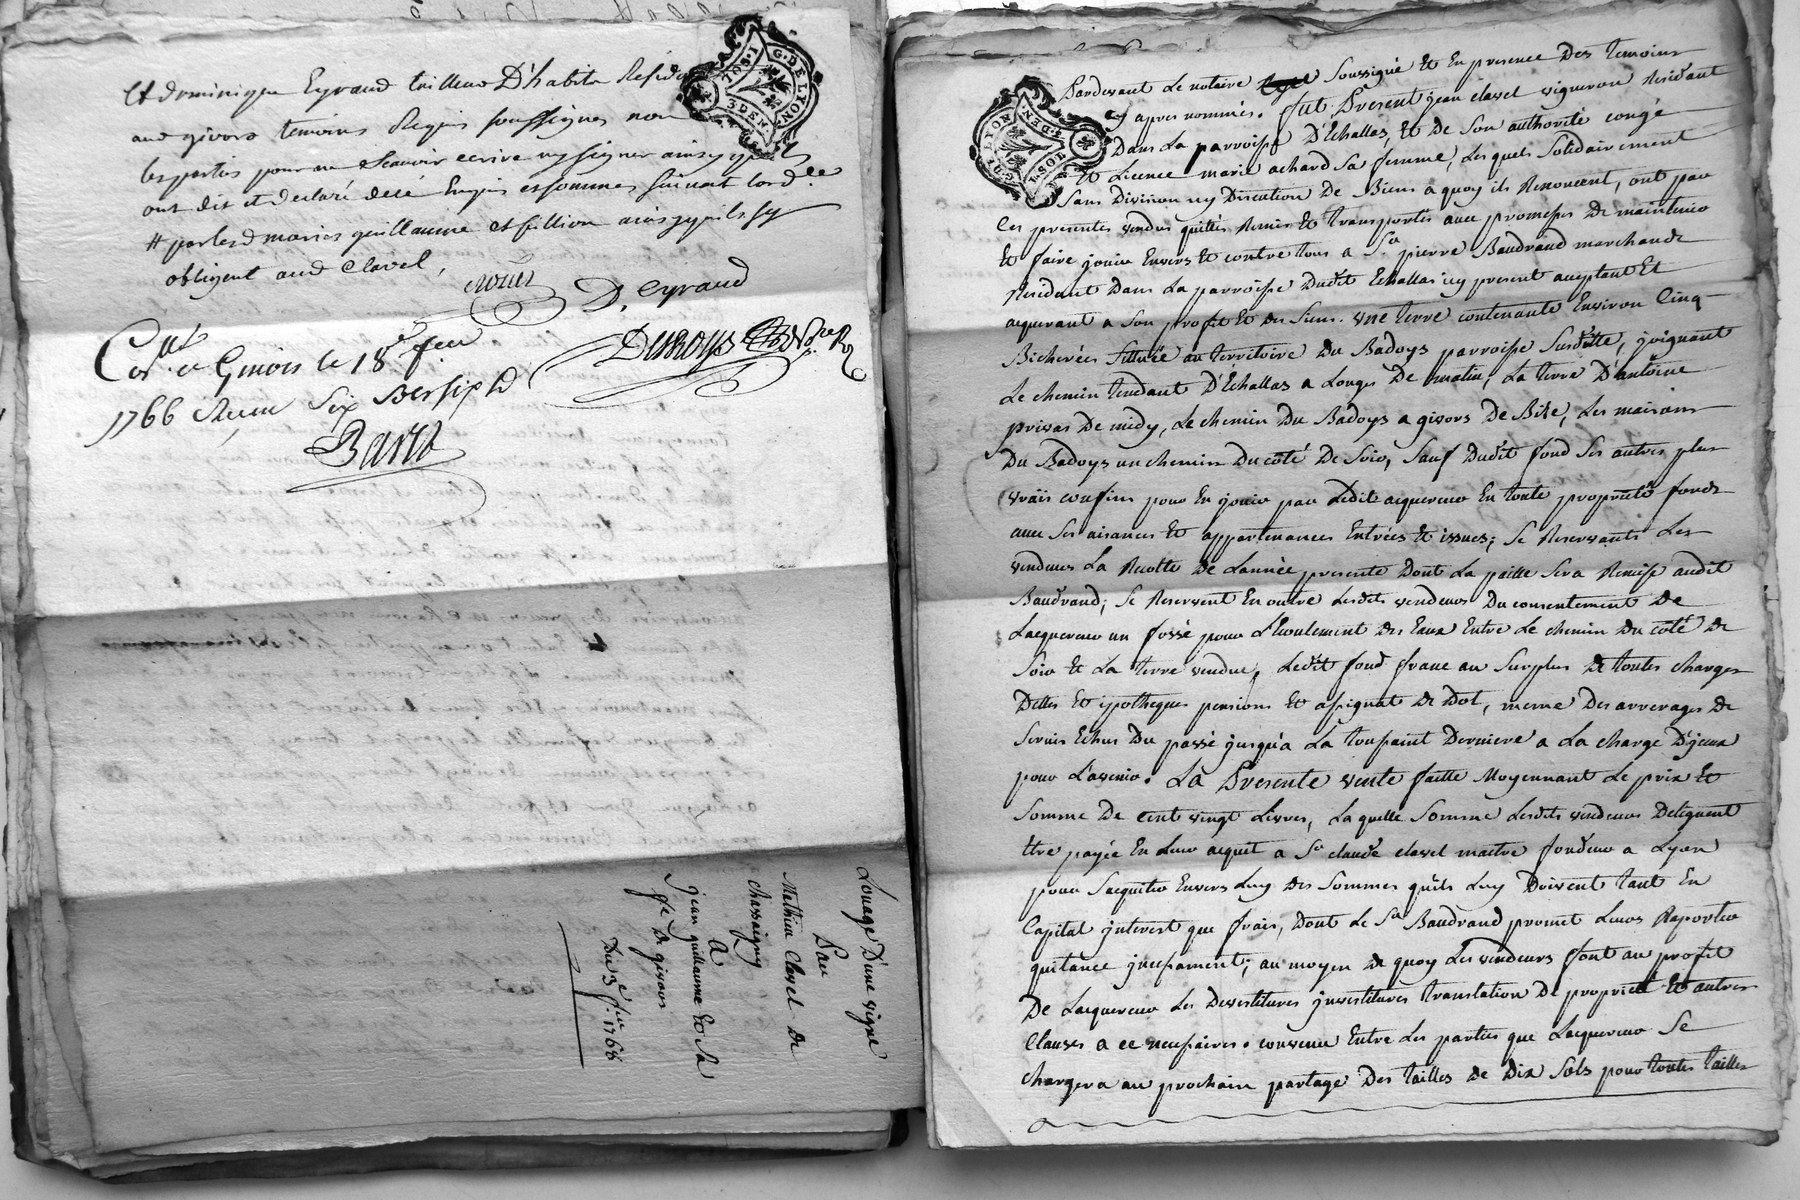 Et dominique Eyraud tailleur D'habits Reside
aud givors temoins Requis soussignes non
les parties pour ne scavoir ecrire ny signer ainsy qu'ils
ont dit et declaré de ce Enquis et sommes suivant lord.ce
# par lesd mariés guillaume et fillion ainsy qu'ils sy
obligent aud Clavel,
D, Eyraud
Con.llé a Givors le 18e feu
1766 Recu Six
G. DE LYON
1 SOL
3 DEN.
Louage D'une vigne
Par
Mathieu Clavel De
Chassaigny
A
jean guillaume Et sa
fe De givors
Du 3e feu. 1768
G. DE LYON
1 SOL
3 DEN.
Pardevant Le notaire Soussigné Et En presence Des Temoins
Cy apres nommés. fut Present jean clavel vigneron Residant
Dans La parroisse D'Echallas, Et De Son authorité congé
Et Licence marie achard Sa femme, Lesquels Solidairement
Sans Division ny Discution De Biens a quoy ils Renoncent, ont par
Ces presentes vendus quittés Remis Et Transportés avec promesses De maintenir
Et faire jouir Envers Et contre tous a Sr. pierre Baudrand marchand
Residant Dans La parroisse Dudit Echallas icy present acceptant Et
acquerant a Son profit Et des Siens. une terre contenante Environ Cinq
Bicherées Sittuée au territoire Du Badoys parroisse Susditte, joignant
Le chemin Tendant D'Echallas a Longes De matin, La terre D'antoine
privas De midy, Le chemin Du Badoys a givors De Bize, Les maisons
Du Badoys un chemin Du coté De Soir, Sauf Dudit fond Ses autres plus
vrais confins pour En jouir par Ledit acquereur En toute proprieté fonds
avec Ses aisances Et appartenances Entrées Et issues; Se Reservants Les
vendeurs La Recolte De Lannée presente Dont La paille Sera Remise audit
Baudrand; Se Reservent En outre Lesdits vendeurs Du consentement De
Lacquereur un fossé pour L'Ecoulement Des Eaux Entre Le chemin Du coté De
Soir Et La terre vendue, Ledit fond franc au Surplus De toutes charges
Dettes Et ypotheques pensions Et assignat De Dot, meme Des arrerages De
Servis Echus Du passé jusqu'a La toussaint Derniere a La charge D'jceux
pour L'avenir. La Presente vente faitte Moyennant Le prix Et
Somme De Cent vingt Livres, La quelle Somme Lesdits vendeurs Deleguent
Etre payée En Leur acquit a Sr claude clavel maitre fondeur a Lyon
pour Sacquitter Envers Luy Des Sommes qu'ils Luy Doivent tant En
Capital jnterest que frais, Dont Le Sr Baudrand promet Leurs Raporter
quitance jncessament; au moyen De quoy Les vendeurs font au profit
De Lacquereur Les Devestitures jnvestitures translation De proprieté Et autres
Clauses a ce necessaires. convenu Entre Les parties que Lacquereur Se
chargera au prochain partage Des tailles De Dix Sols pour toutes tailles